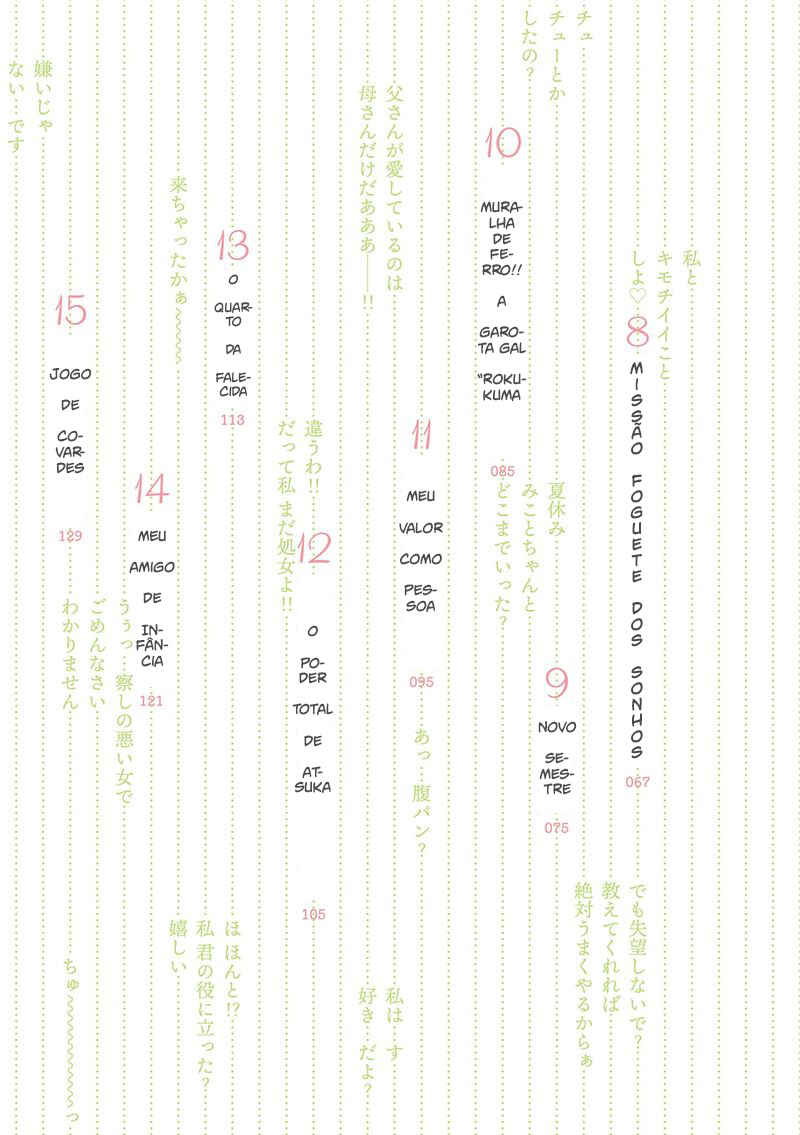 私と
キモチイイこと
しよ♡
8
MISSÃO FOGUETE DOS SONHOS
067
でも失望しないで?
教えてくれれば
絶対うまくやるからぁ
チュ
チューとか
したの?
9
NOVO
SE-
MES-
TRE
075
夏休み
みことちゃんと
どこまでいった?
10
MURA-
LHA
DE
FE-
RRO!!
A
GARO-
TA GAL
"ROKU-
KUMA
085
11
MEU
VALOR
COMO
PES-
SOA
095
あっ…腹パン?
父さんが愛しているのは
母さんだけだあああ――!!
私は す
好き…だよ?
違うわ!!
だって私 まだ処女よ!!
12
O
PO-
DER
TOTAL
DE
AT-
SUKA
105
13
O
QUAR-
TO
DA
FALE-
CIDA
113
来ちゃったかぁ~~~
ほ ほんと!?
私 君の役に立った?
嬉しい
14
MEU
AMIGO
DE
IN-
FÂN-
CIA
121
うぅっ…察しの悪い女で
ごめんなさい
わかりません
15
JOGO
DE
CO-
VAR-
DES
129
ちゅ~~~~~~っ
嫌いじゃ
ない…です